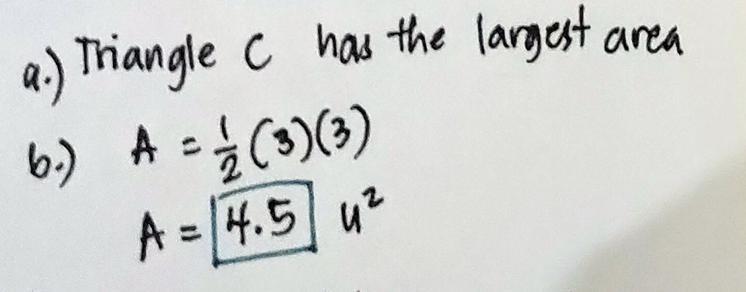 a.) Triangle C has the largest area
b.) A = 1/2 (3)(3)
A = 4.5 u²